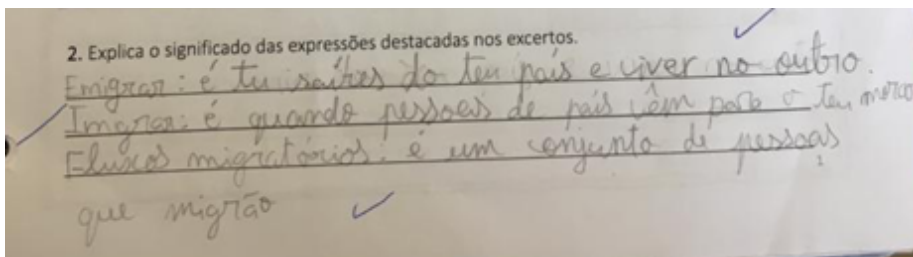 2. Explica o significado das expressões destacadas nos excertos.
Emigrar: é tu saíres do teu país e viver no outro.
Imigrar: é quando pessoas de país vêm para o teu
Fluxos migratórios: é um conjunto de pessoas
que migrão